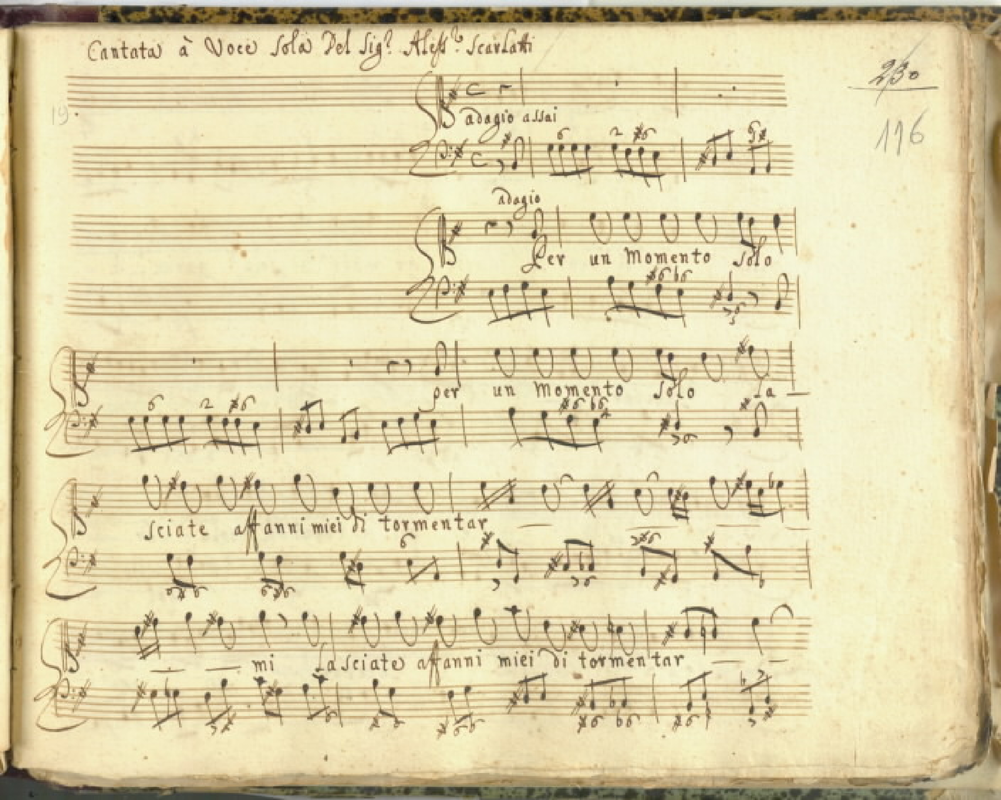 Cantata à Voce sola Del Sig.r Aless.o Scarlatti
230
19.
116
adagio assai
adagio
Per un Momento solo
per un Momento solo la —
sciate affanni miei di tormentar — —
— — mi lasciate affanni miei di tormentar — —